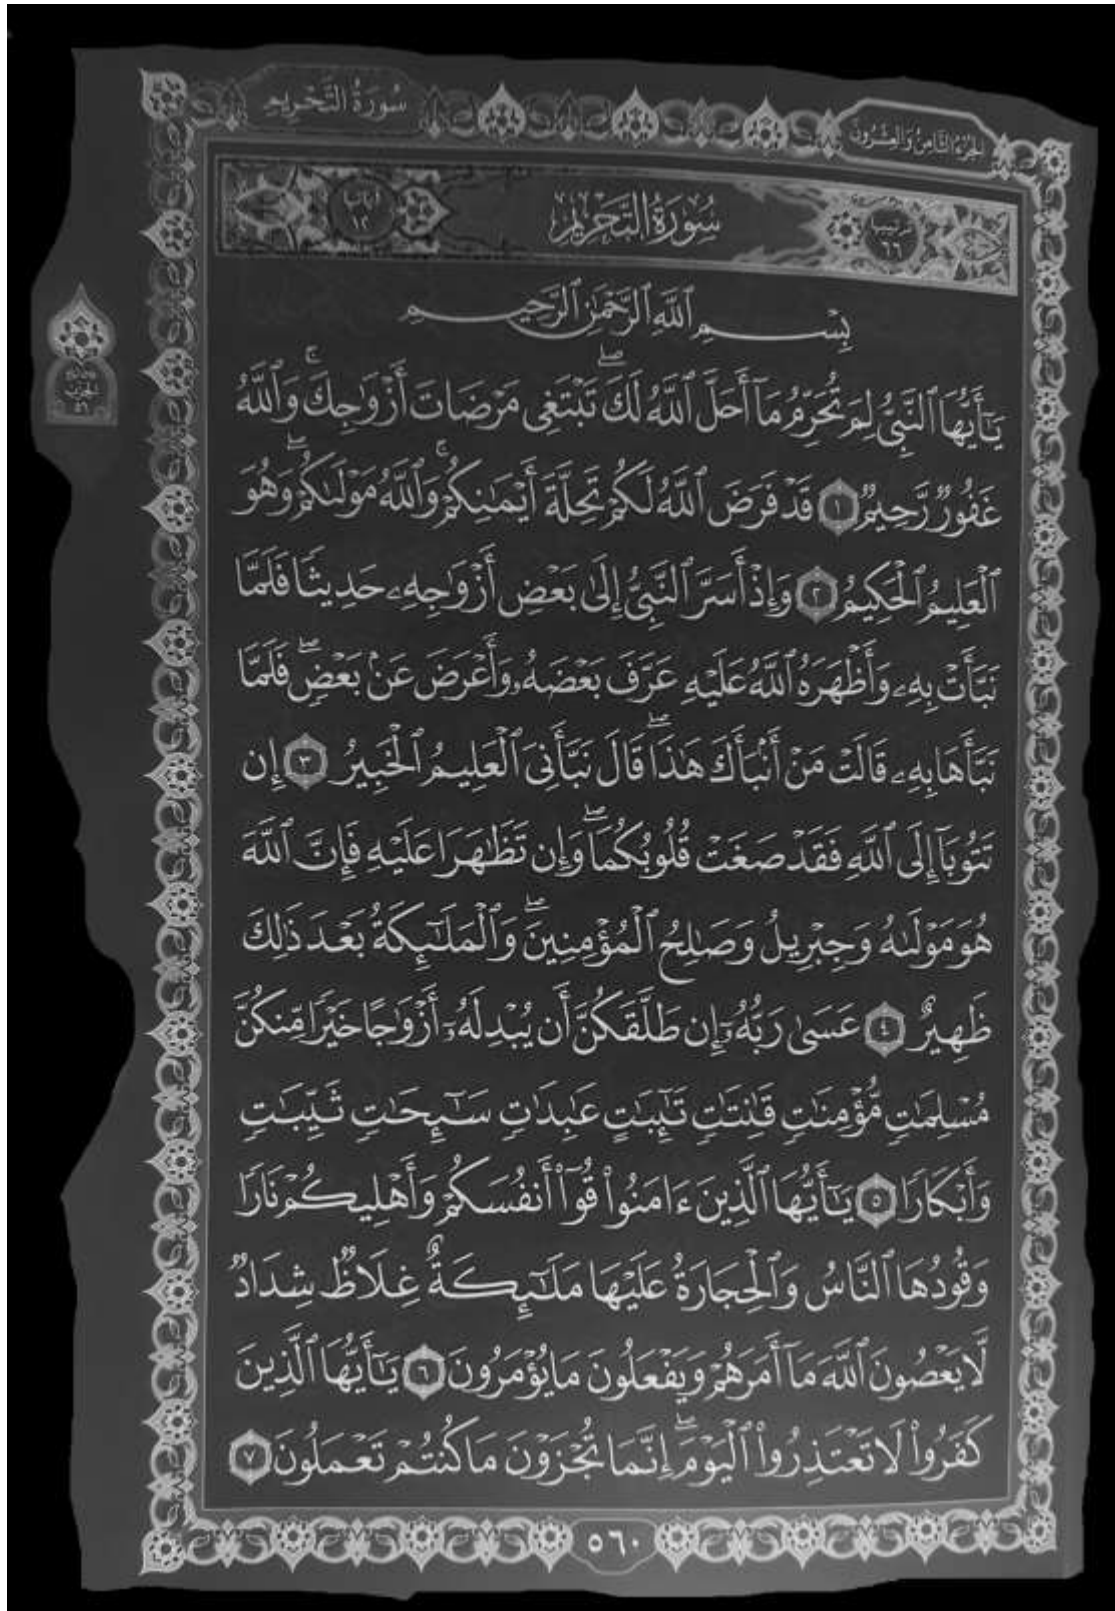 الجزء الثامن والعشرون
سورة التحريم
ترتيبها ٦٦
سُورَةُ التَّحْرِيمِ
آياتها ١٢
بِسْمِ ٱللَّهِ ٱلرَّحْمَٰنِ ٱلرَّحِيمِ
يَٰٓأَيُّهَا ٱلنَّبِيُّ لِمَ تُحَرِّمُ مَآ أَحَلَّ ٱللَّهُ لَكَۖ تَبْتَغِي مَرْضَاتَ أَزْوَٰجِكَۚ وَٱللَّهُ
غَفُورٞ رَّحِيمٞ ١ قَدْ فَرَضَ ٱللَّهُ لَكُمْ تَحِلَّةَ أَيْمَٰنِكُمْۚ وَٱللَّهُ مَوْلَىٰكُمْۖ وَهُوَ
ٱلْعَلِيمُ ٱلْحَكِيمُ ٢ وَإِذْ أَسَرَّ ٱلنَّبِيُّ إِلَىٰ بَعْضِ أَزْوَٰجِهِۦ حَدِيثٗا فَلَمَّا
نَبَّأَتْ بِهِۦ وَأَظْهَرَهُ ٱللَّهُ عَلَيْهِ عَرَّفَ بَعْضَهُۥ وَأَعْرَضَ عَنۢ بَعْضٖۖ فَلَمَّا
نَبَّأَهَا بِهِۦ قَالَتْ مَنْ أَنۢبَأَكَ هَٰذَاۖ قَالَ نَبَّأَنِيَ ٱلْعَلِيمُ ٱلْخَبِيرُ ٣ إِن
تَتُوبَآ إِلَى ٱللَّهِ فَقَدْ صَغَتْ قُلُوبُكُمَاۖ وَإِن تَظَٰهَرَا عَلَيْهِ فَإِنَّ ٱللَّهَ
هُوَ مَوْلَىٰهُ وَجِبْرِيلُ وَصَٰلِحُ ٱلْمُؤْمِنِينَۖ وَٱلْمَلَٰٓئِكَةُ بَعْدَ ذَٰلِكَ
ظَهِيرٌ ٤ عَسَىٰ رَبُّهُۥٓ إِن طَلَّقَكُنَّ أَن يُبْدِلَهُۥٓ أَزْوَٰجًا خَيْرٗا مِّنكُنَّ
مُسْلِمَٰتٖ مُّؤْمِنَٰتٖ قَٰنِتَٰتٖ تَٰٓئِبَٰتٍ عَٰبِدَٰتٖ سَٰٓئِحَٰتٖ ثَيِّبَٰتٖ
وَأَبْكَارٗا ٥ يَٰٓأَيُّهَا ٱلَّذِينَ ءَامَنُواْ قُوٓاْ أَنفُسَكُمْ وَأَهْلِيكُمْ نَارٗا
وَقُودُهَا ٱلنَّاسُ وَٱلْحِجَارَةُ عَلَيْهَا مَلَٰٓئِكَةٌ غِلَاظٞ شِدَادٞ
لَّا يَعْصُونَ ٱللَّهَ مَآ أَمَرَهُمْ وَيَفْعَلُونَ مَا يُؤْمَرُونَ ٦ يَٰٓأَيُّهَا ٱلَّذِينَ
كَفَرُواْ لَا تَعْتَذِرُواْ ٱلْيَوْمَۖ إِنَّمَا تُجْزَوْنَ مَا كُنتُمْ تَعْمَلُونَ ٧
٥٦٠